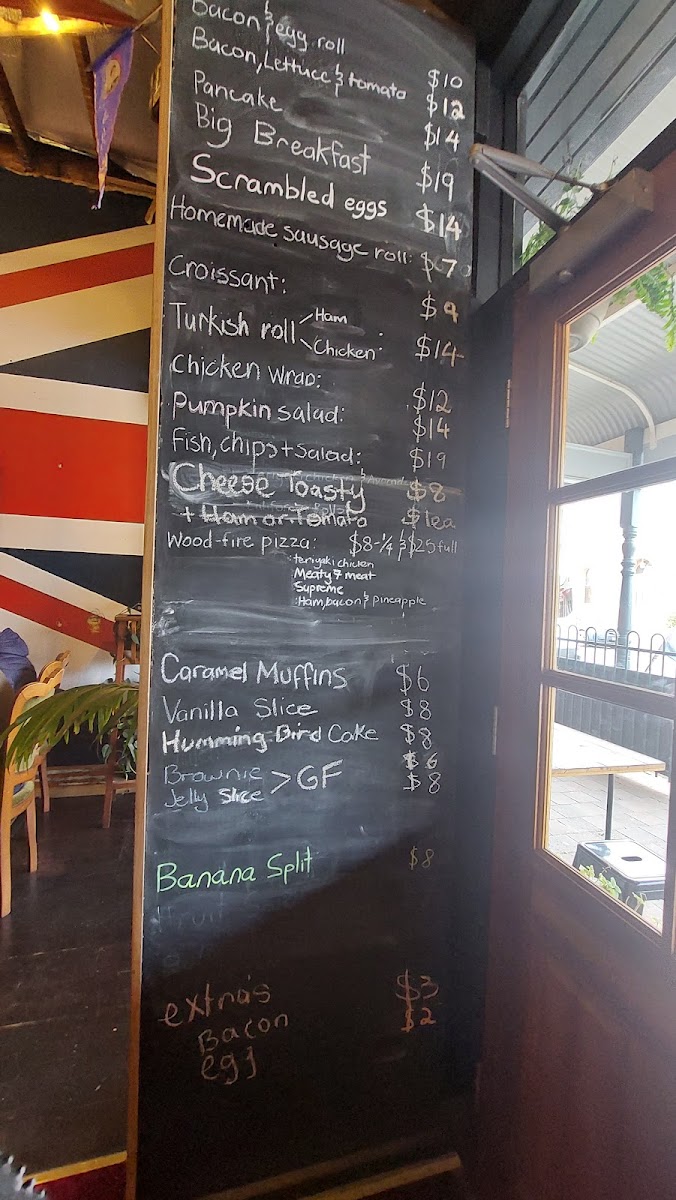 Bacon & egg roll $10
Bacon, Lettuce & tomato $12
Pancake $14
Big Breakfast $19
Scrambled eggs $14
Homemade sausage roll: $7
Croissant: $9
Turkish roll Ham : $14
Chicken
Chicken wrap: $12
Pumpkin salad: $14
Fish, chips + salad: $19
Cheese Toasty $8
+ Ham or Tomato $1ea
Wood-fire pizza: $8-1/4 & $25 full
: teriyaki chicken
Meaty 7 meat
Supreme
: Ham, bacon & pineapple
Caramel Muffins $6
Vanilla Slice $8
Humming Bird Cake $8
Brownie > GF $6
Jelly Slice $8
Banana Split $8
extra's $3
Bacon $2
egg